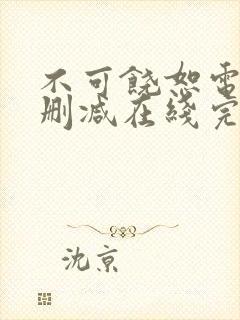 不可饶恕電
删减在綫完
沈京